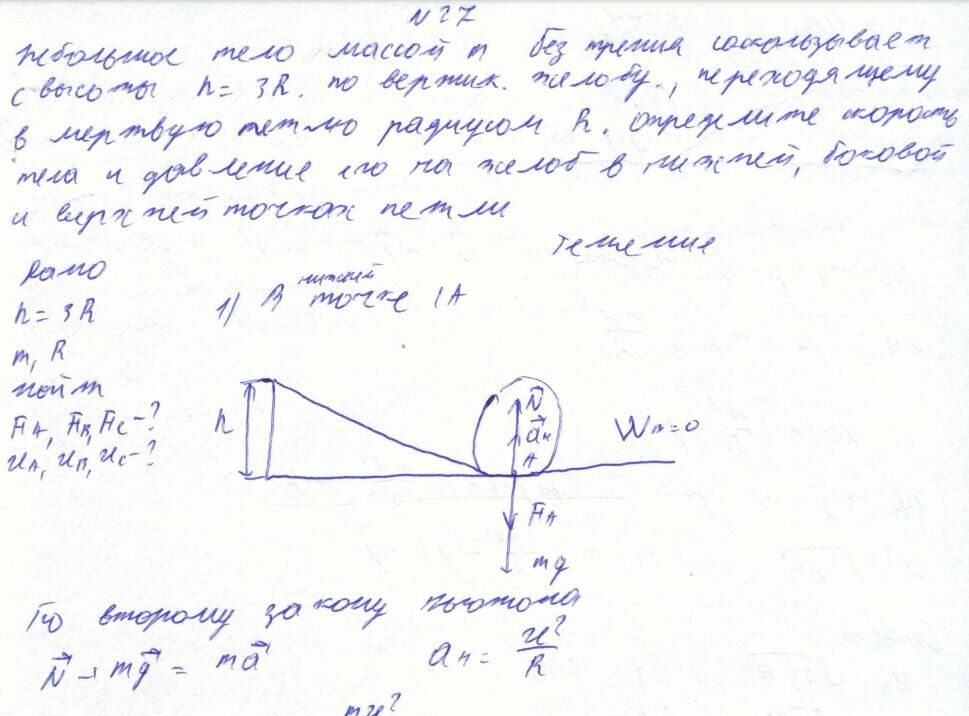 N 27
Небольшое тело массой m без трения соскальзывает
с высоты h = 3R. по вертик. желобу., переходящему
в мертвую петлю радиусом R. определите скорость
тела и давление его на желоб в нижней, боковой
и верхней точках петли
Решение
Дано
h = 3R
m, R
найти
FA, FB, FC - ?
υA, υB, υC - ?
1) В нижней точке (A
h
N⃗
a⃗н
A
Wп=0
FA
mg
По второму закону Ньютона
N⃗ + mg⃗ = ma⃗
aн = υ²/R
mυ²